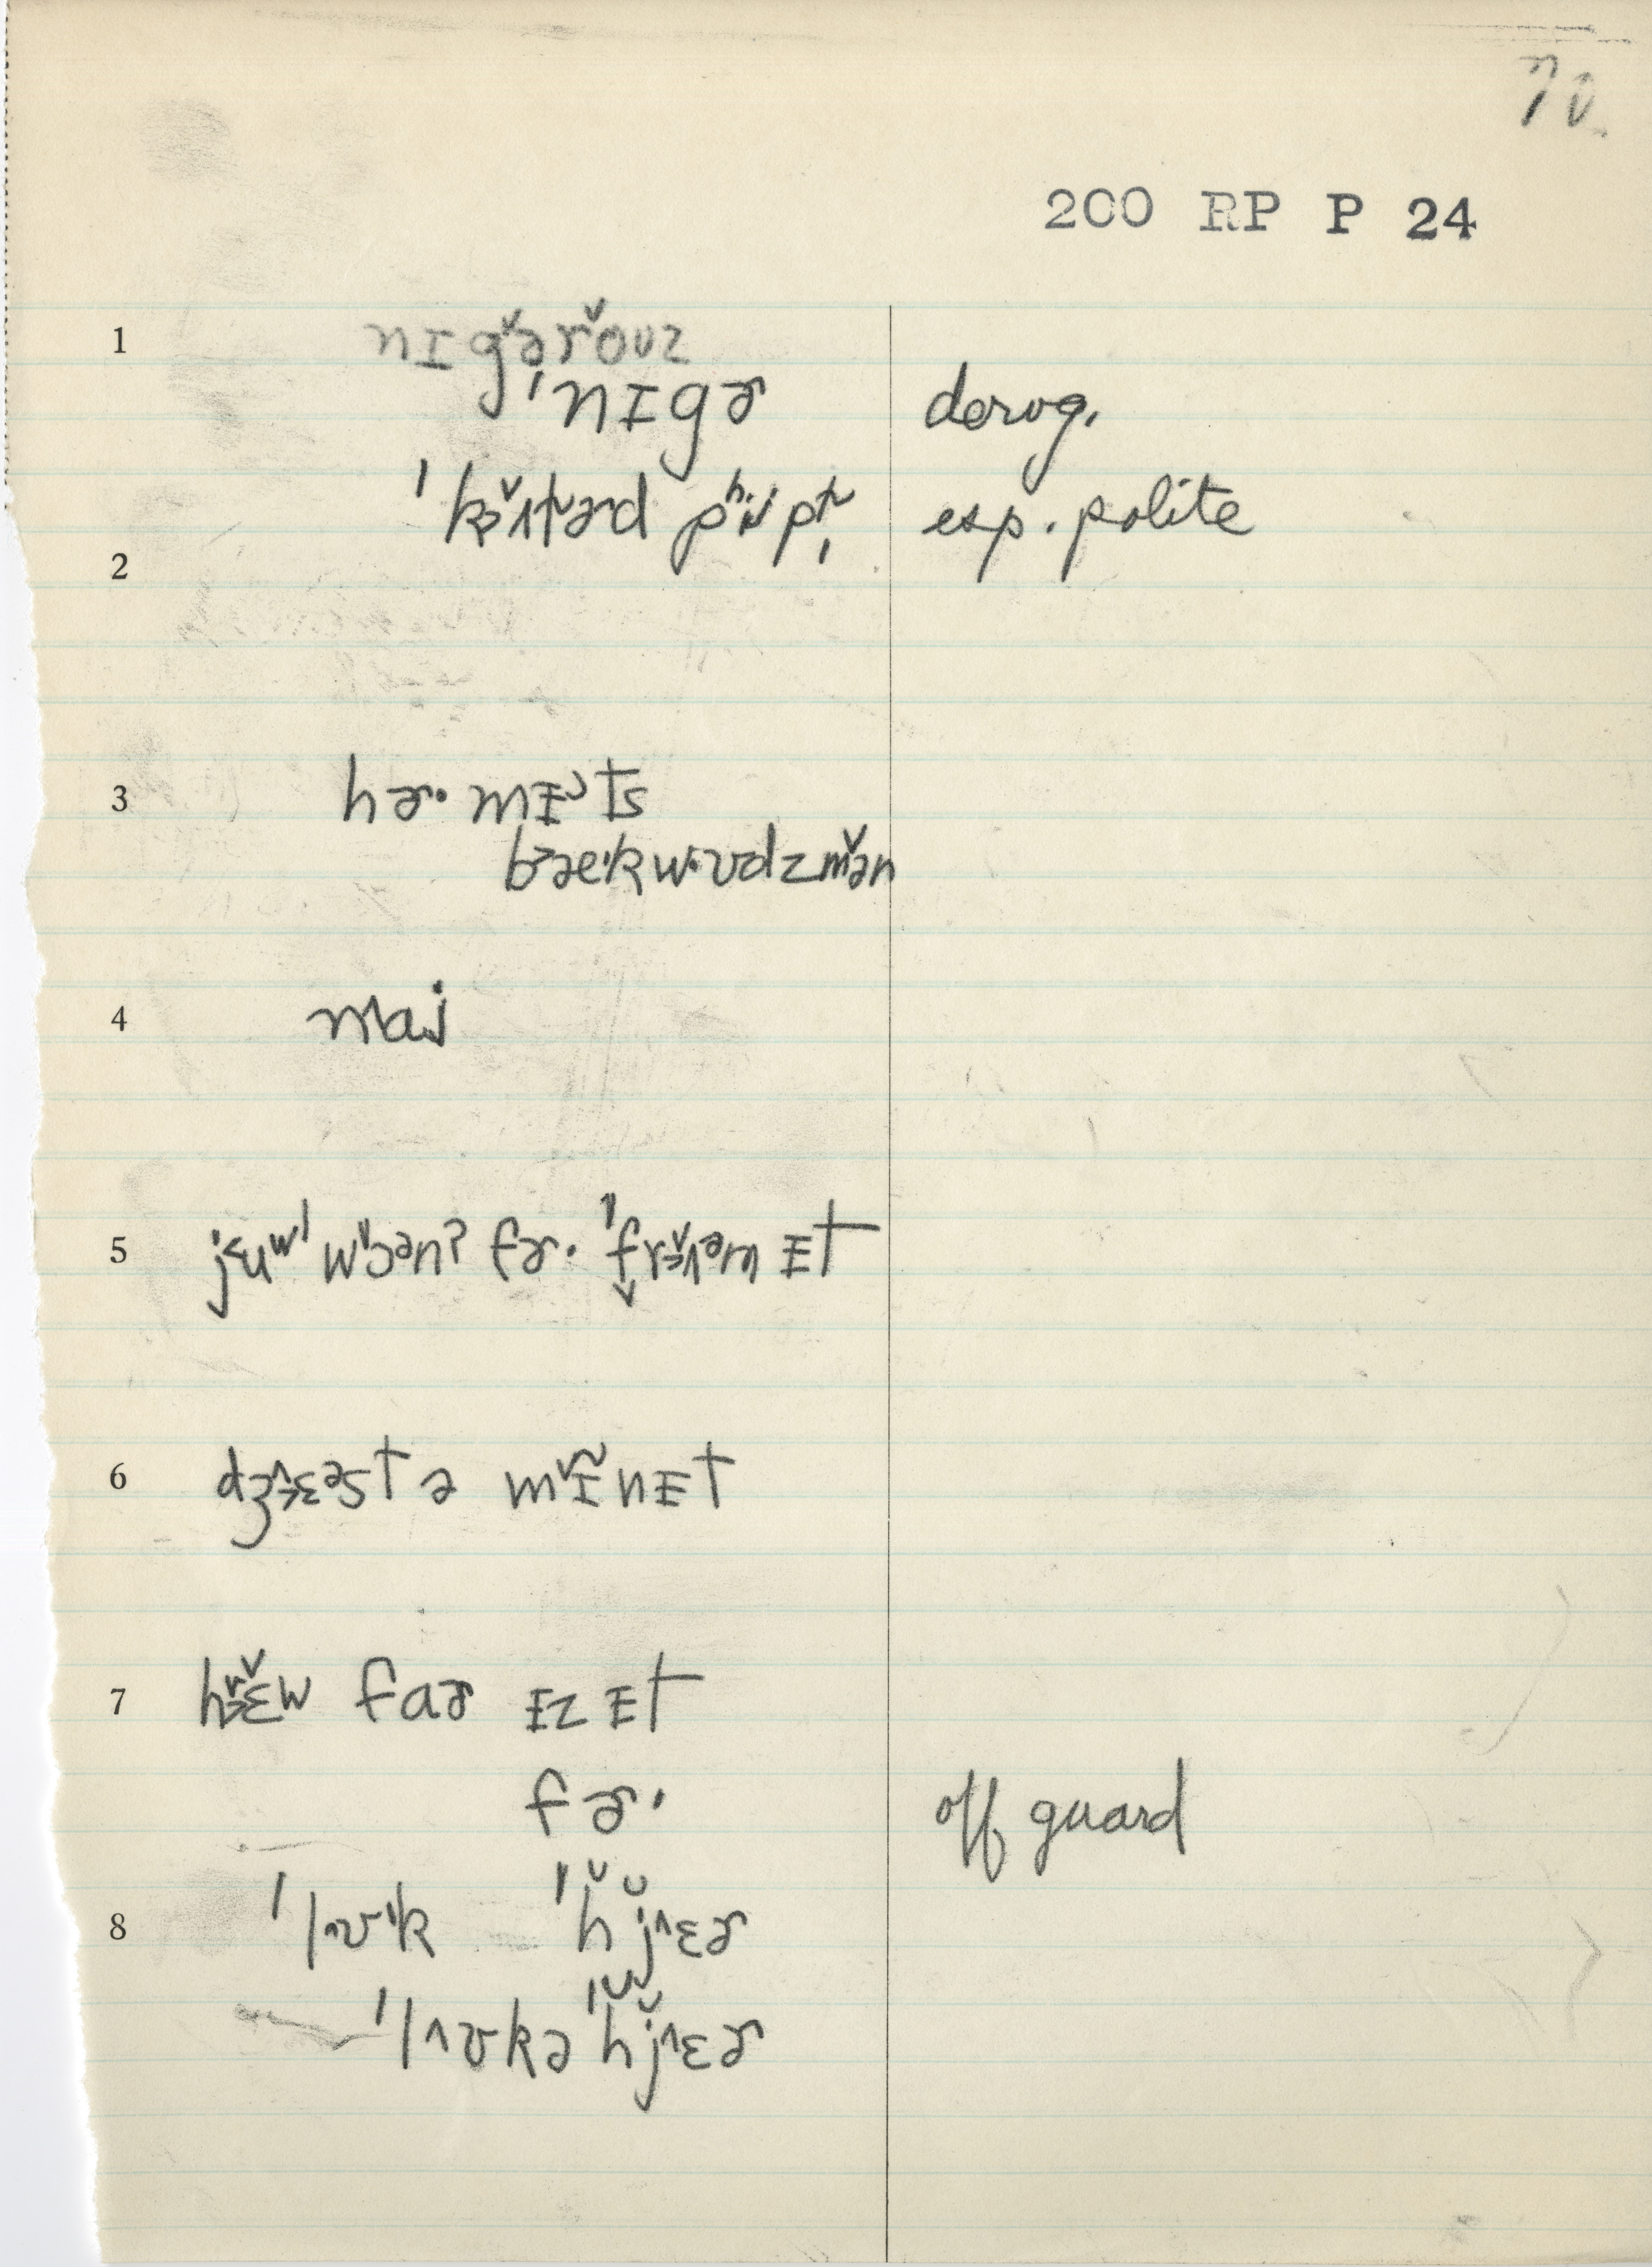 70.
200 RP P 24
1 nɪgə̌rǒʊz
ˈnɪgɚ derog.
ˈkʌ̌lɚd pʰipl̩ esp. polite
2
3 hɚ· mɪᵊts
bækwʊdzmə̌n
4 maj
5 jʉʷˈ wɔᵊnʔ fɚ· ˈfrʌ̌ᵊm ɪt
6 dʒɛᵊst ə mɪ̃nɪt
7 hɛ̌w faɚ ɪz ɪt
fɚ· off guard
8 ˈlʊk ˈhjɛɚ
ˈlʊkə ˈhjɛɚ